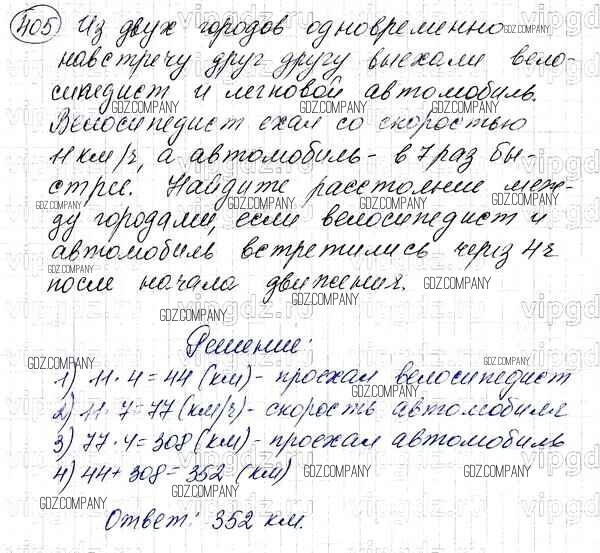 405 Из двух городов одновременно
навстречу друг другу выехали вело-
сипедист и легковой автомобиль.
Велосипедист ехал со скоростью
11 км/ч, а автомобиль - в 7 раз бы-
стрее. Найдите расстояние меж-
ду городами, если велосипедист и
автомобиль встретились через 4 ч
после начала движения.
Решение:
1) 11 · 4 = 44 (км) - проехал велосипедист
2) 11 · 7 = 77 (км/ч) - скорость автомобиля
3) 77 · 4 = 308 (км) - проехал автомобиль
4) 44 + 308 = 352 (км)
Ответ: 352 км.